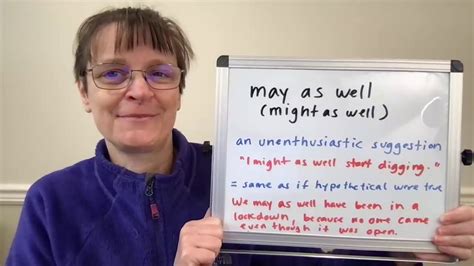 may as well
(might as well)
an unenthusiastic suggestion
"I might as well start digging."
= same as if hypothetical were true
We may as well have been in a
lockdown, because no one came
even though it was open.